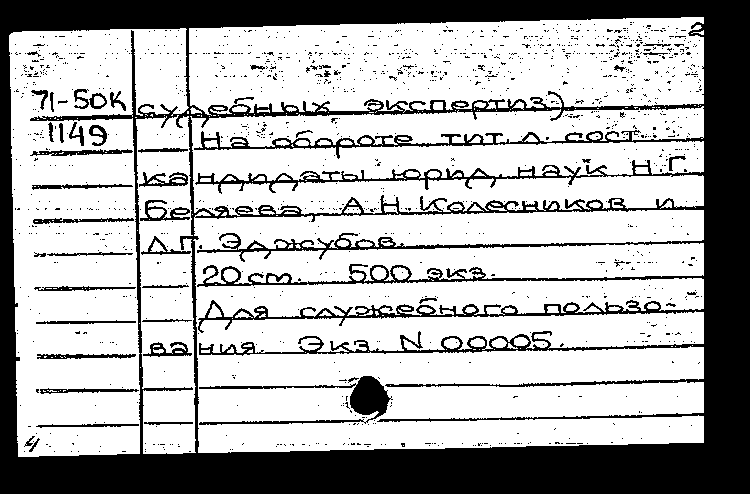 2
71-50К судебных экспертиз).-
1149 На обороте тит. л. сост.:
кандидаты юрид. наук Н.Г.
Беляева, А.Н. Колесников и
Л.Г. Эджубов.
20 см. 500 экз.
Для служебного пользо-
вания. Экз. N 00005.
4